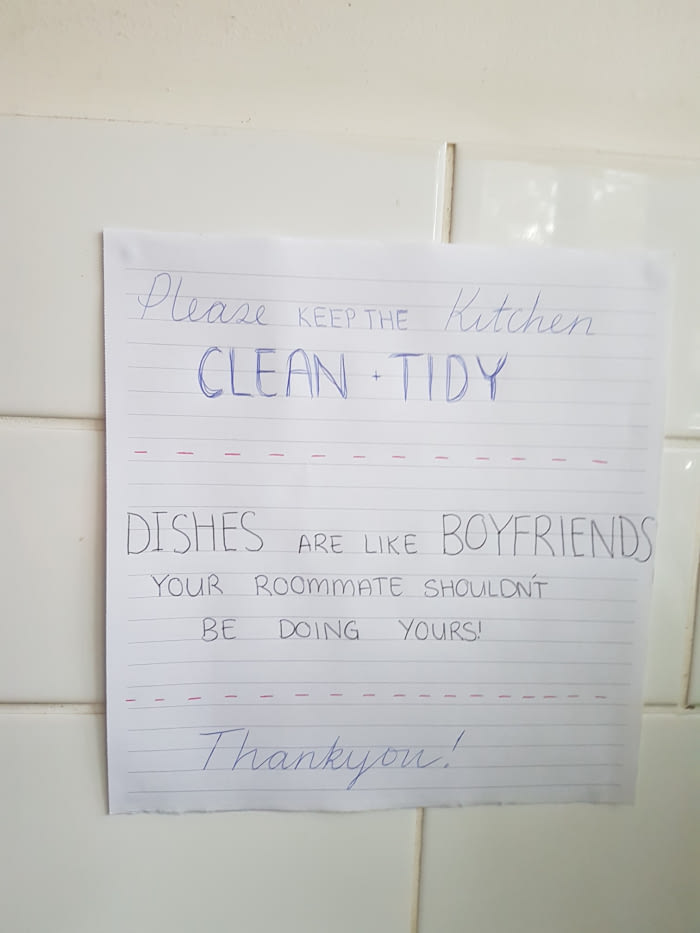 Please KEEP THE Kitchen
CLEAN + TIDY
DISHES ARE LIKE BOYFRIENDS
YOUR ROOMMATE SHOULDN'T
BE DOING YOURS!
Thankyou!